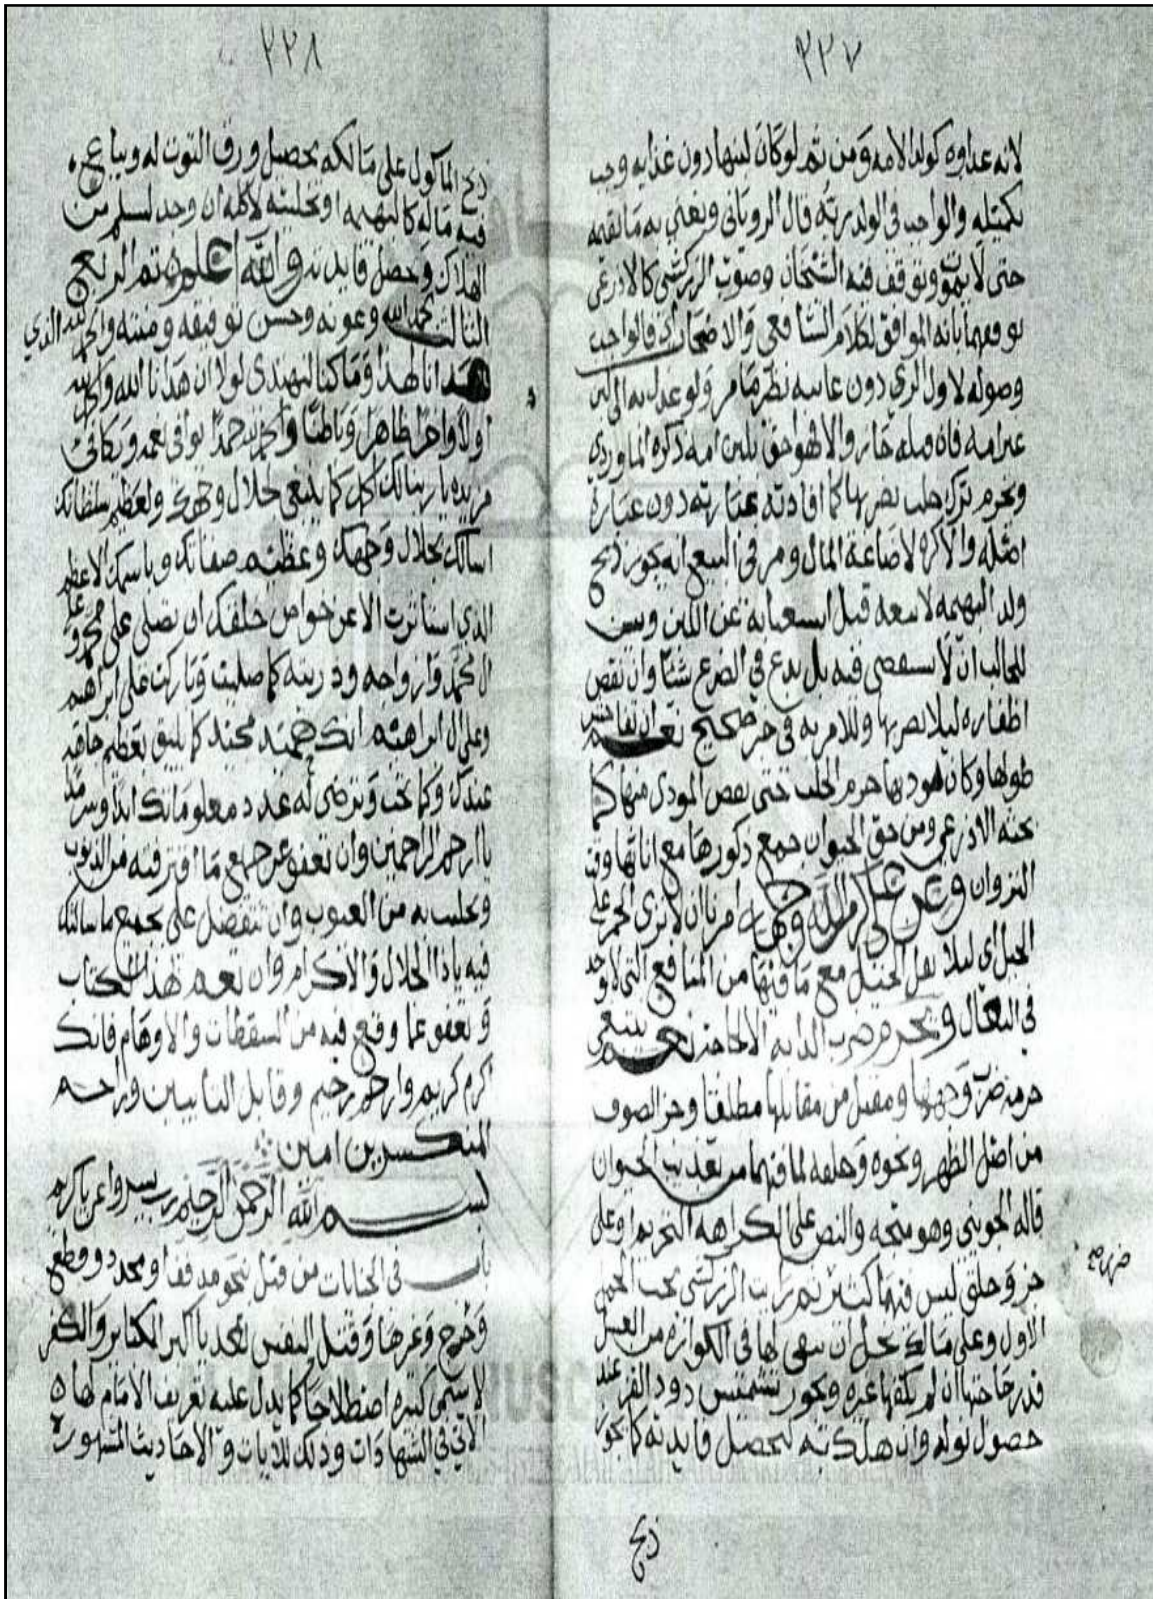 ٣٣٧
لانه غذاوه كولد الامه ومن ثم لو كان لبنها دون غذايه وجب
تكميله والواجب في الولد ريه قال الروياني ونعني به ما يقيمه
حتى لا يموت وتوقف فيه الشيخان وصوب الزركشي كالاذرعي
توقفهما بانه الموافق لكلام الشافعي والاصحاب فالواجب
وصوله لاول الري دون غايته نظير ما مر ولو عدل به الى لبن
غير امه فان قبله جاز والا فهو احق بلبن امه ذكره الماوردي
ويحرم ترك حلب يضر بها كما افادته عبارته دون عبارة
اصله والا كره لاضاعة المال ومر في البيع انه يجوز ذبح
ولد البهيمه لاسعه قبل استغنايه عن اللبن ويسن
للحالب ان لا يستقصي فيه بل يدع في الضرع شيا وان يقص
اظفاره ليلا يضر بها وللامر به في خبر صحيح نعم ان تفاحش
طولها وكان يوذيها حرم الحلب حتى يقص الموذي منها كما
بحثه الاذرعي ومن حق الحيوان جمع ذكورها مع اناثها وقت
النزوان وعن علي كرم الله وجهه امرنا ان لا ننزي الحمر على
الخيل اي ليلا تقل الخيل مع ما فيها من المنافع التي لا توجد
في البغال ويحرم ضرب الدابه الا لحاجة نعم ينبغي
حرمة ضرب وجهها ومقبل من مقابلها مطلقا وجز الصوف
من اصل الظهر ونحوه وحلقه لما فيهما من تعذيب الحيوان
قاله الجويني وهو متجه والنص على الكراهه التحريم او على
جز وحلق ليس فيهما كثير ثم رايت الزركشي بحث الحمل
الاول وعلى مالك نحل ان يبقي لها في الكوارة من العسل
قدر حاجتها ان لم يكفها غيره ويجوز تشميس دود القز عند
حصول نوله وان هلك به لتحصيل فايدته كما يجوز
ذبح
٣٣٨
ذبح الماكول على مالكه تحصيل ورق التوت له ويباع
فيه ماله كالبهيمه او تخليته لاكله ان وجد ليسلم من
الهلاك وتحصل فايدته والله اعلم تم الربع
الثالث بحمد الله وعونه وحسن توفيقه ومنته والحمد لله الذي
هدانا لهذا وما كنا لنهتدي لولا ان هدانا الله والحمد لله
اولا واخرا ظاهرا وباطنا والحمد لله حمدا يوافي نعمه ويكافي
مزيده يا ربنا لك الحمد كما ينبغي لجلال وجهك ولعظيم سلطانك
اسالك بجلال وجهك وعظيم صفاتك وباسمك الاعظم
الذي استاثرت الا عن خواص خلقك ان تصلي على محمد وعلى
ال محمد وازواجه وذريته كما صليت وباركت على ابراهيم
وعلى ال ابراهيم انك حميد مجيد كما يليق بعظيم جاهه
عندك وكما تحب وترضى له عدد معلوماتك ابدا وسرمدا
يا ارحم الراحمين وان تعفو عن جميع ما اقترفته من الذنوب
وتحليت به من العيوب وان تتفضل علي بجميع ما سالتك
فيه يا ذا الجلال والاكرام وان تعم بهذا الكتاب
وتعفو عما وقع فيه من السقطات والاوهام فانك
اكرم كريم وارحم رحيم وقابل التايبين وراحم
المنكسرين امين
بسم الله الرحمن الرحيم رب يسر واعن يا كريم
باب في الجنايات من قتل بنحو مدقف او محدد وقطع
وجرح وغيرها وقتل النفس تعديا اكبر الكباير والكفر
لا يسمى كبيره اصطلاحا كما يدل عليه تعريف الامام لها
الاتي في الشهادات وذلك للايات والاحاديث المشهورة